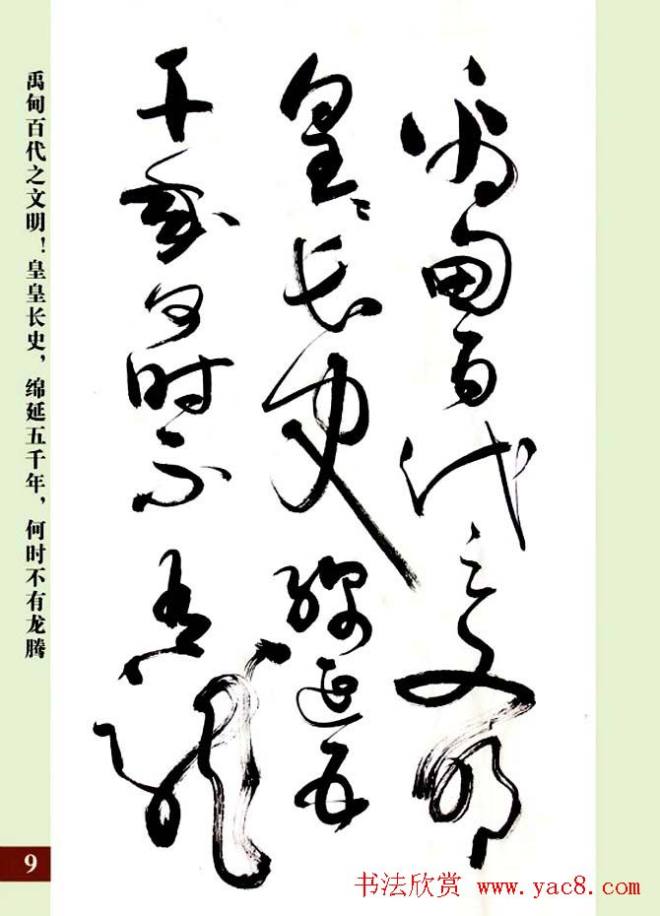 禹甸百代之文明
皇々长史绵延五
千年何时不有龙
禹甸百代之文明！皇皇长史，绵延五千年，何时不有龙腾
9
书法欣赏 www.yac8.com